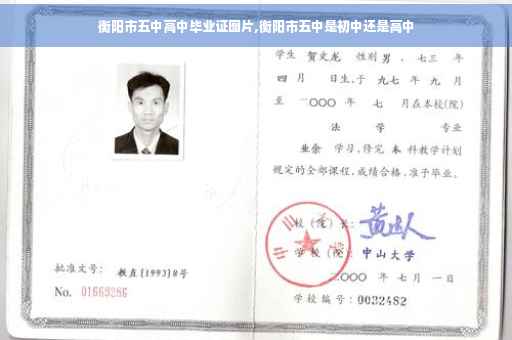 衡阳市五中高中毕业证图片,衡阳市五中是初中还是高中
学生 贺文龙 性别 男 、七三 年
四 月 日生,于 九七 年 九 月
至 二〇〇〇 年 七 月在本校(院)
法 学 专业
业余 学习,修完 本 科教学计划
规定的全部课程,成绩合格,准予毕业。
校(院)长:
学 校(院): 中山大学
二〇〇〇 年 七 月 一 日
学校编号: 0032482
批准文号: 教直[1993]8号
No. 01669286